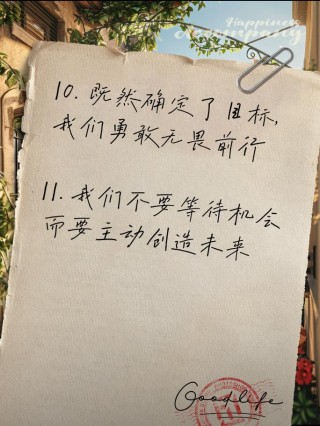 Happiness
accompany
10. 既然确定了目标,
我们勇敢无畏前行
11. 我们不要等待机会
而要主动创造未来
Goodlife